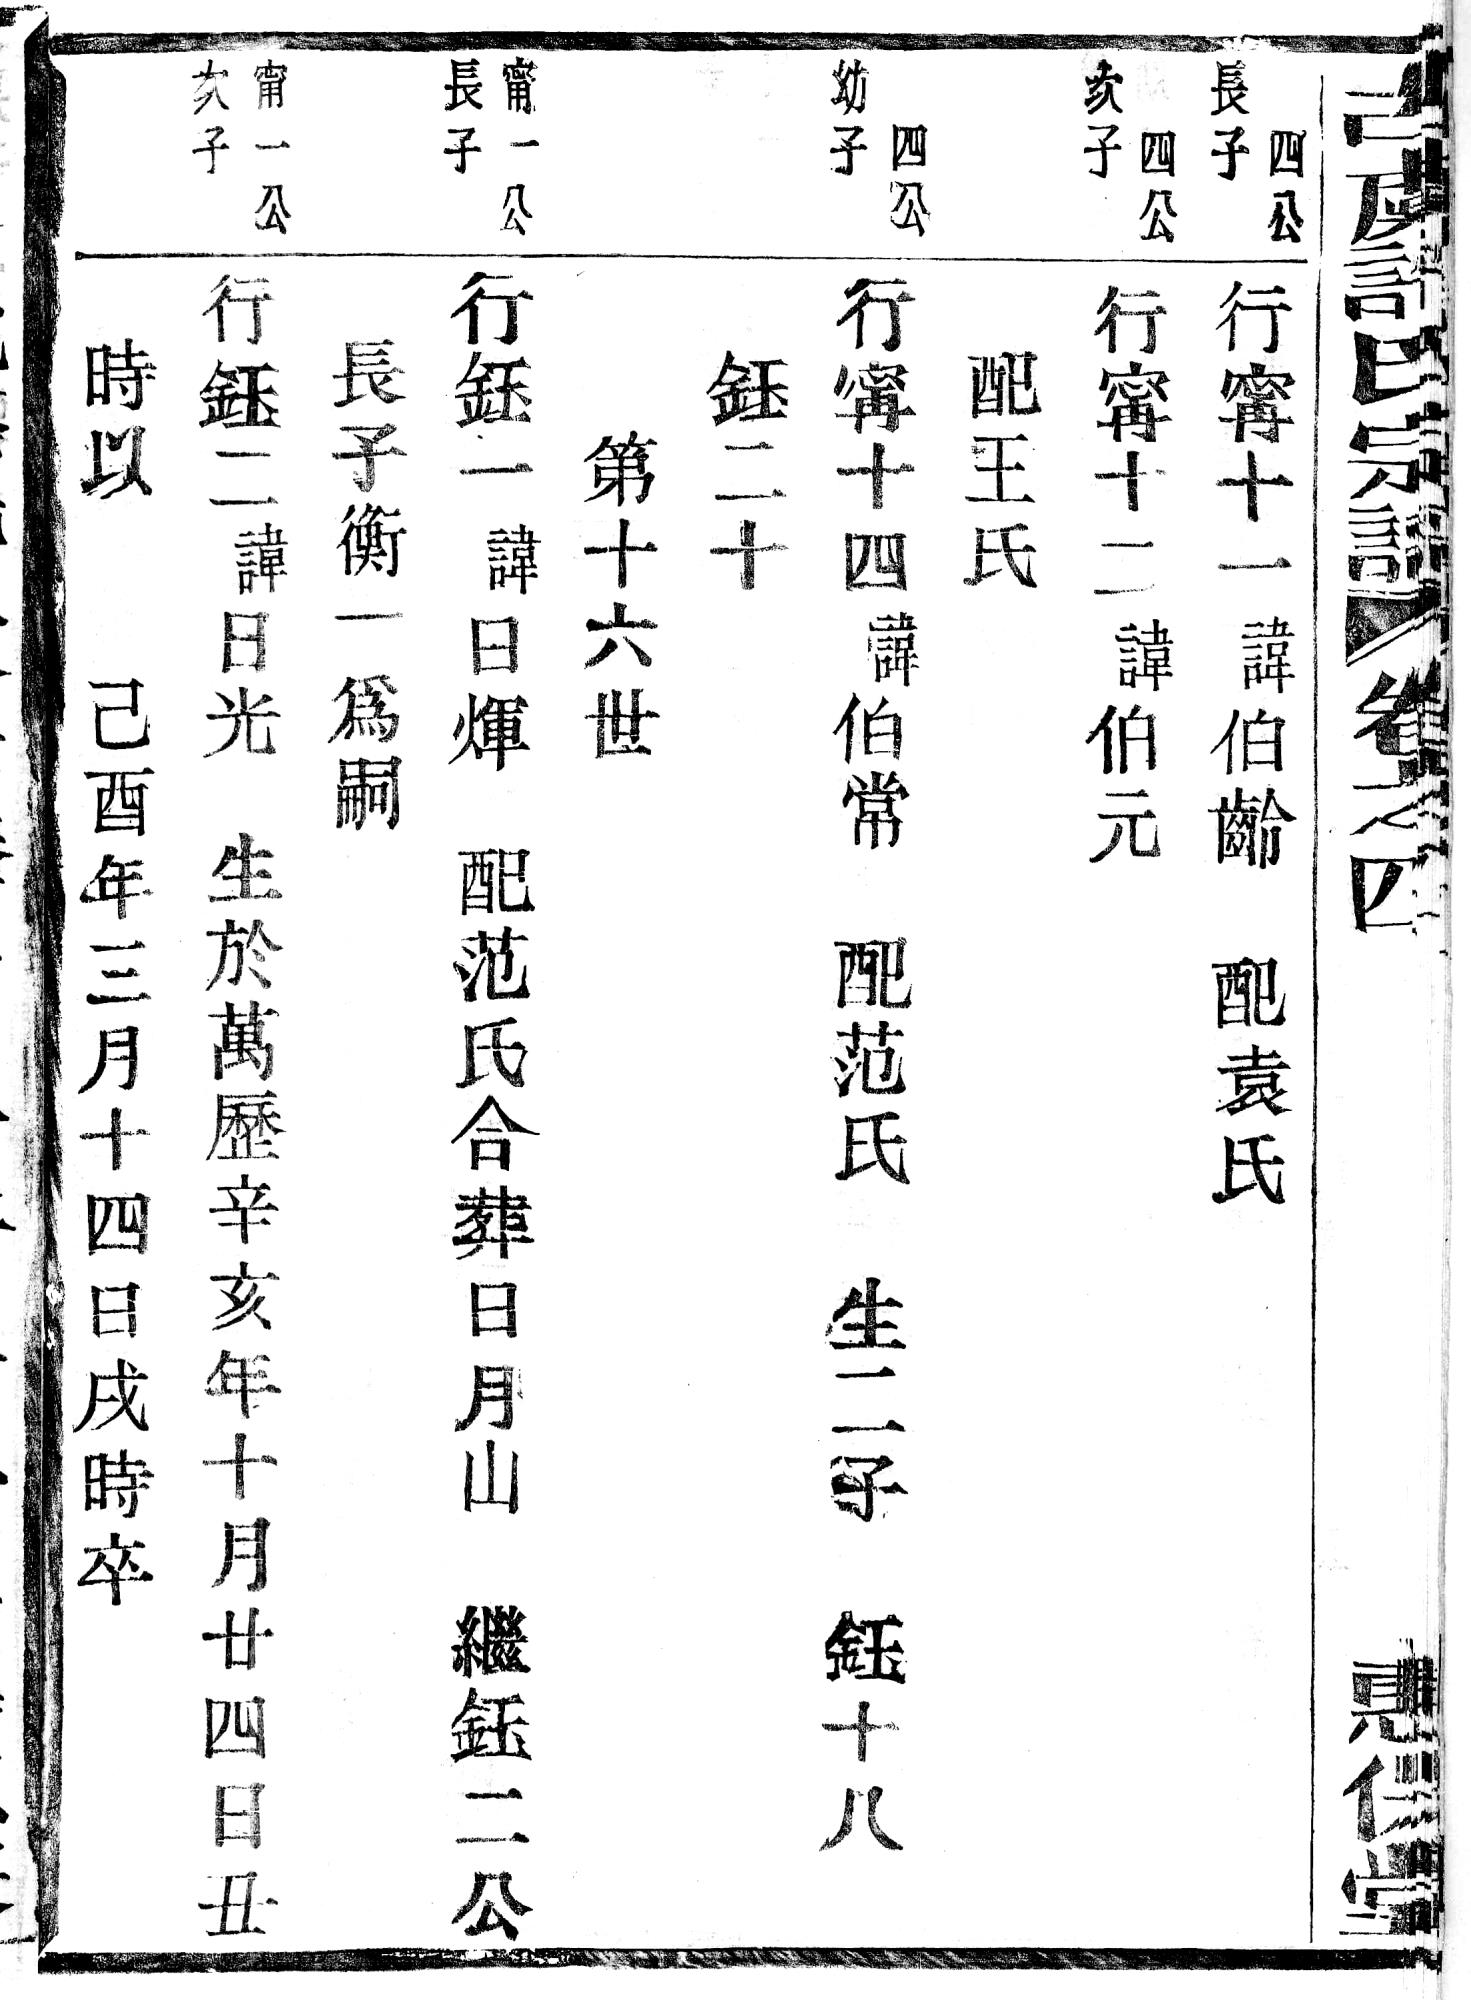 古虞許氏宗譜 卷之四 堂
四公
長子
行甯十一 諱伯齡 配袁氏
四公
次子
行甯十二 諱伯元
配王氏
四公
幼子
行甯十四 諱伯常 配范氏 生二子 鈺十八
鈺二十
第十六世
甯一公
長子
行鈺一 諱日煇 配范氏合葬日月山 繼鈺二公
長子衡一爲嗣
甯一公
次子
行鈺二 諱日光 生於萬歷辛亥年十月廿四日丑
時以 己酉年三月十四日戌時卒